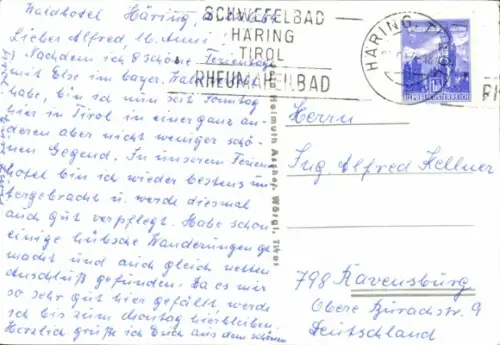 Waldhotel Häring,
Lieber Alfred u. Anni!
Nachdem ich 8 schöne Ferientage
mit Else im bayer.
habe, bin ich nun seit Sonntag
hier in Tirol in einer ganz an-
deren aber nicht weniger schö-
nen Gegend. In unserem Ferien-
hotel bin ich wieder bestens un-
tergebracht u. werde diesmal
auch gut verpflegt. Habe schon
einige hübsche Wanderungen ge-
macht und auch gleich netten
Anschluß gefunden. Da es mir
so sehr gut hier gefällt werde
ich bis zum Montag hierbleiben.
Herzlich grüße ich Euch aus dem schönen
SCHWEFELBAD
HÄRING
TIROL
RHEUMAHEILBAD
HÄRING
Helmuth Ascher, Wörgl, Tirol
Herrn
Ing. Alfred Kellner
798 Ravensburg
Obere Burachstr. 9
Deutschland